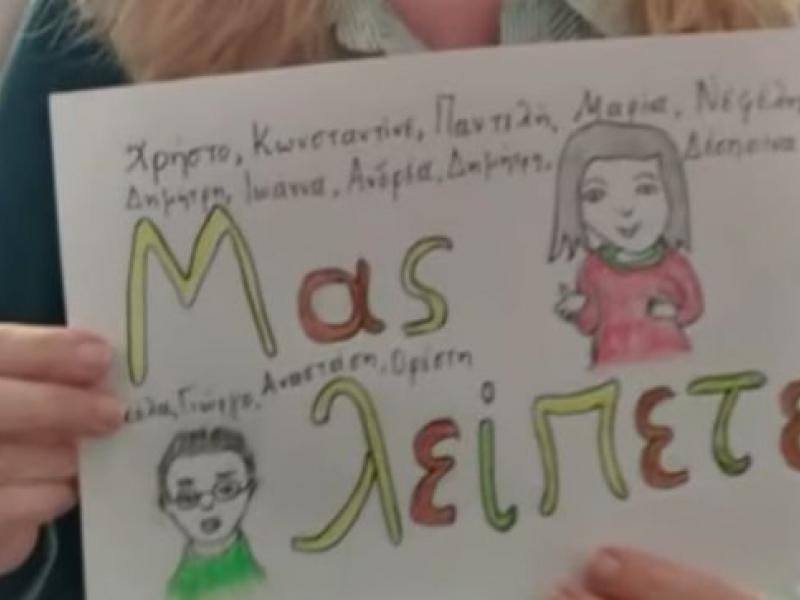 Χρήστο, Κωνσταντίνε, Παντελή, Μαρία, Νεφέλη
Δημήτρη, Ιωάννα, Ανδρέα, Δημήτρη, Δέσποινα
Μας
Γιώργο, Αναστάση, Ορέστη
λείπετε